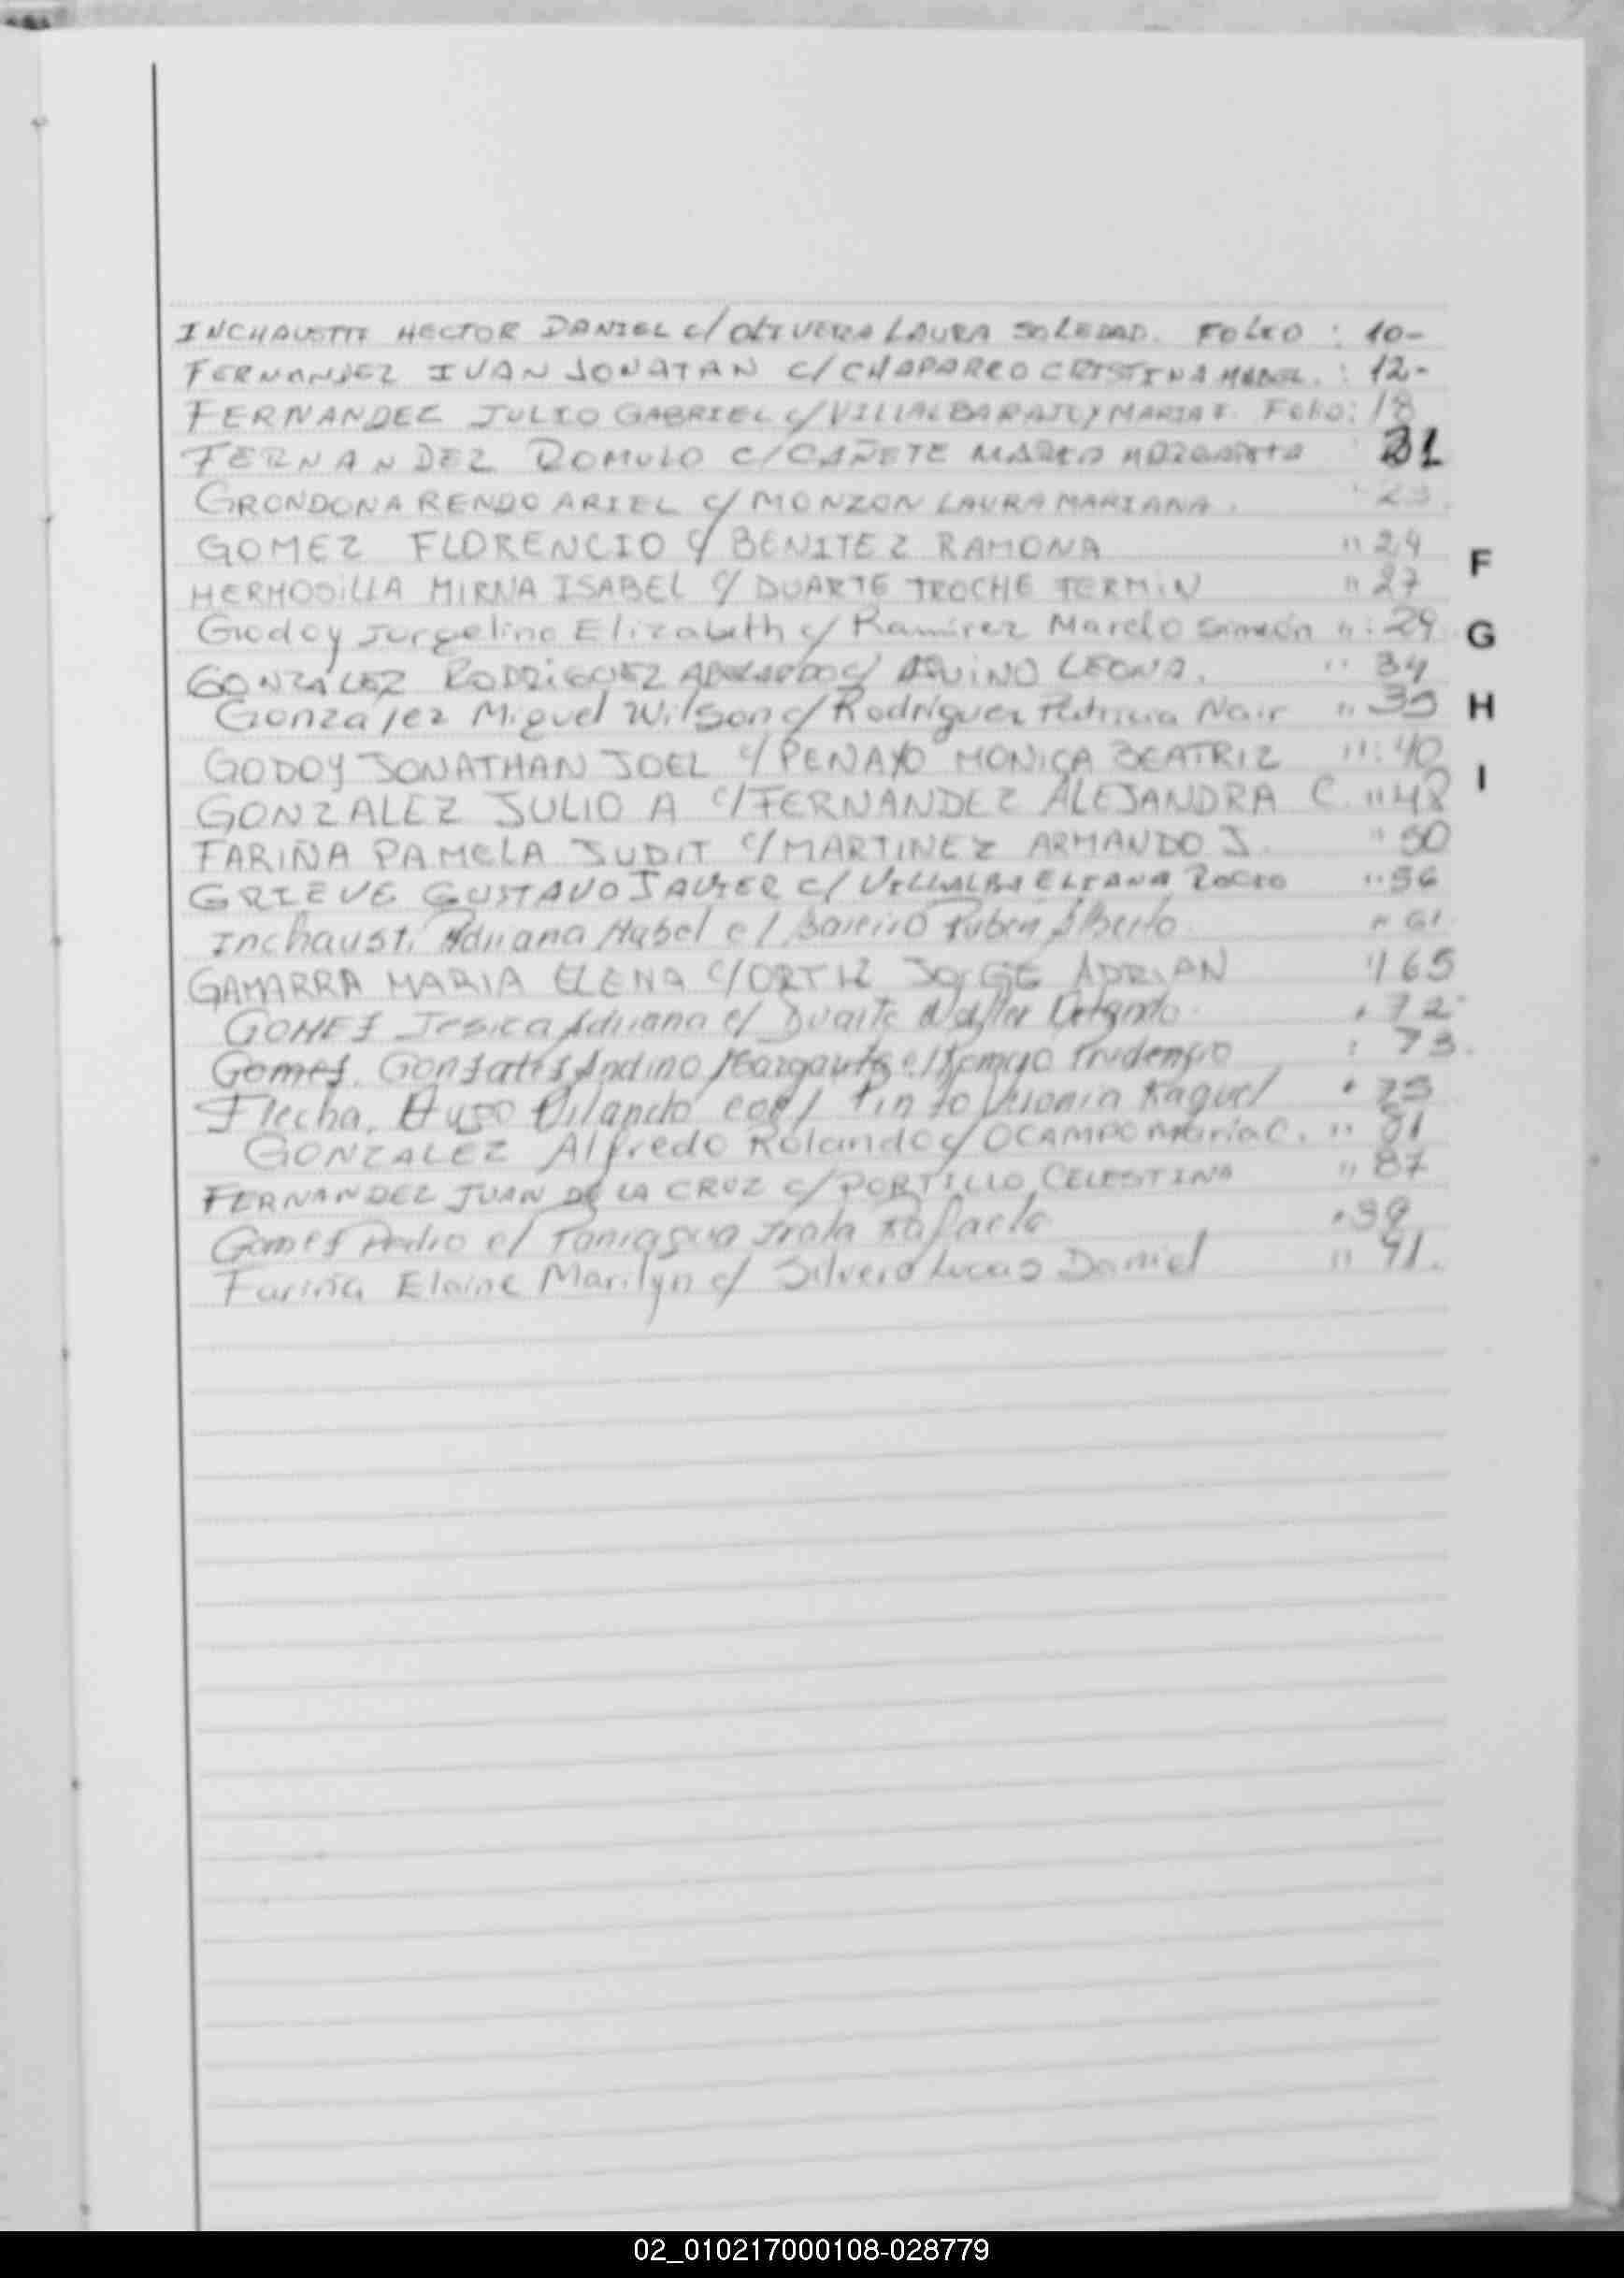 INCHAUSTTI HECTOR DANIEL c/ OLIVERA LAURA SOLEDAD. FOLIO : 10-
FERNANDEZ IVAN JONATAN c/ CHAPARRO CRISTINA MABEL. : 12-
FERNANDEZ JULIO GABRIEL c/ VILLALBA MARIA F. Folio: 18
FERNANDEZ ROMULO c/ CAÑETE 31
GRONDONA RENDO ARIEL c/ MONZON LAURA MARIANA. " 23.
GOMEZ FLORENCIO c/ BENITEZ RAMONA " 24
HERMOSiLLA MIRNA ISABEL c/ DUARTE TROCHE FERMiN " 27
Godoy Jorgelina Elizabeth c/ Ramirez Marcelo Simeón " : 29
GONZALEZ RODRiGUEZ ABELARDO c/ AQUiNO LEONA. " 34
Gonzalez Miguel Wilson c/ Rodríguez Patricia Nair " 35
GODOY JONATHAN JOEL c/ PENAYO MONICA BEATRIZ " : 40
GONZALEZ JULIO A c/ FERNANDEZ ALEJANDRA C. " 48
FARIÑA PAMELA JUDIT c/ MARTINEZ ARMANDO J. " 50
GRIEVE GUSTAVO JAVIER c/ VILLALBA ELIANA ROCIO " 56
Inchausti Adriana Mabel c/ Bareiro Ruben Alberto " 61
GAMARRA MARIA ELENA c/ ORTIZ JORGE ADRIAN " 65
GOMEZ Jesica Adriana c/ Duarte Orlando. " 72
Gomez. Gonzales Andino Margarita c/ Prudenzio : 73.
Flecha, Hugo con / Pinto Raquel " 75
GONZALEZ Alfredo Rolando c/ OCAMPO Maria C. " 81
FERNANDEZ JUAN DE LA CRUZ c/ PORTILLO CELESTINA " 87
Gomez Pedro c/ Paniagua Irala Rafaela " 89
Fariña Elaine Marilyn c/ Silvero Lucas Daniel " 91.
F
G
H
I
02_010217000108-028779